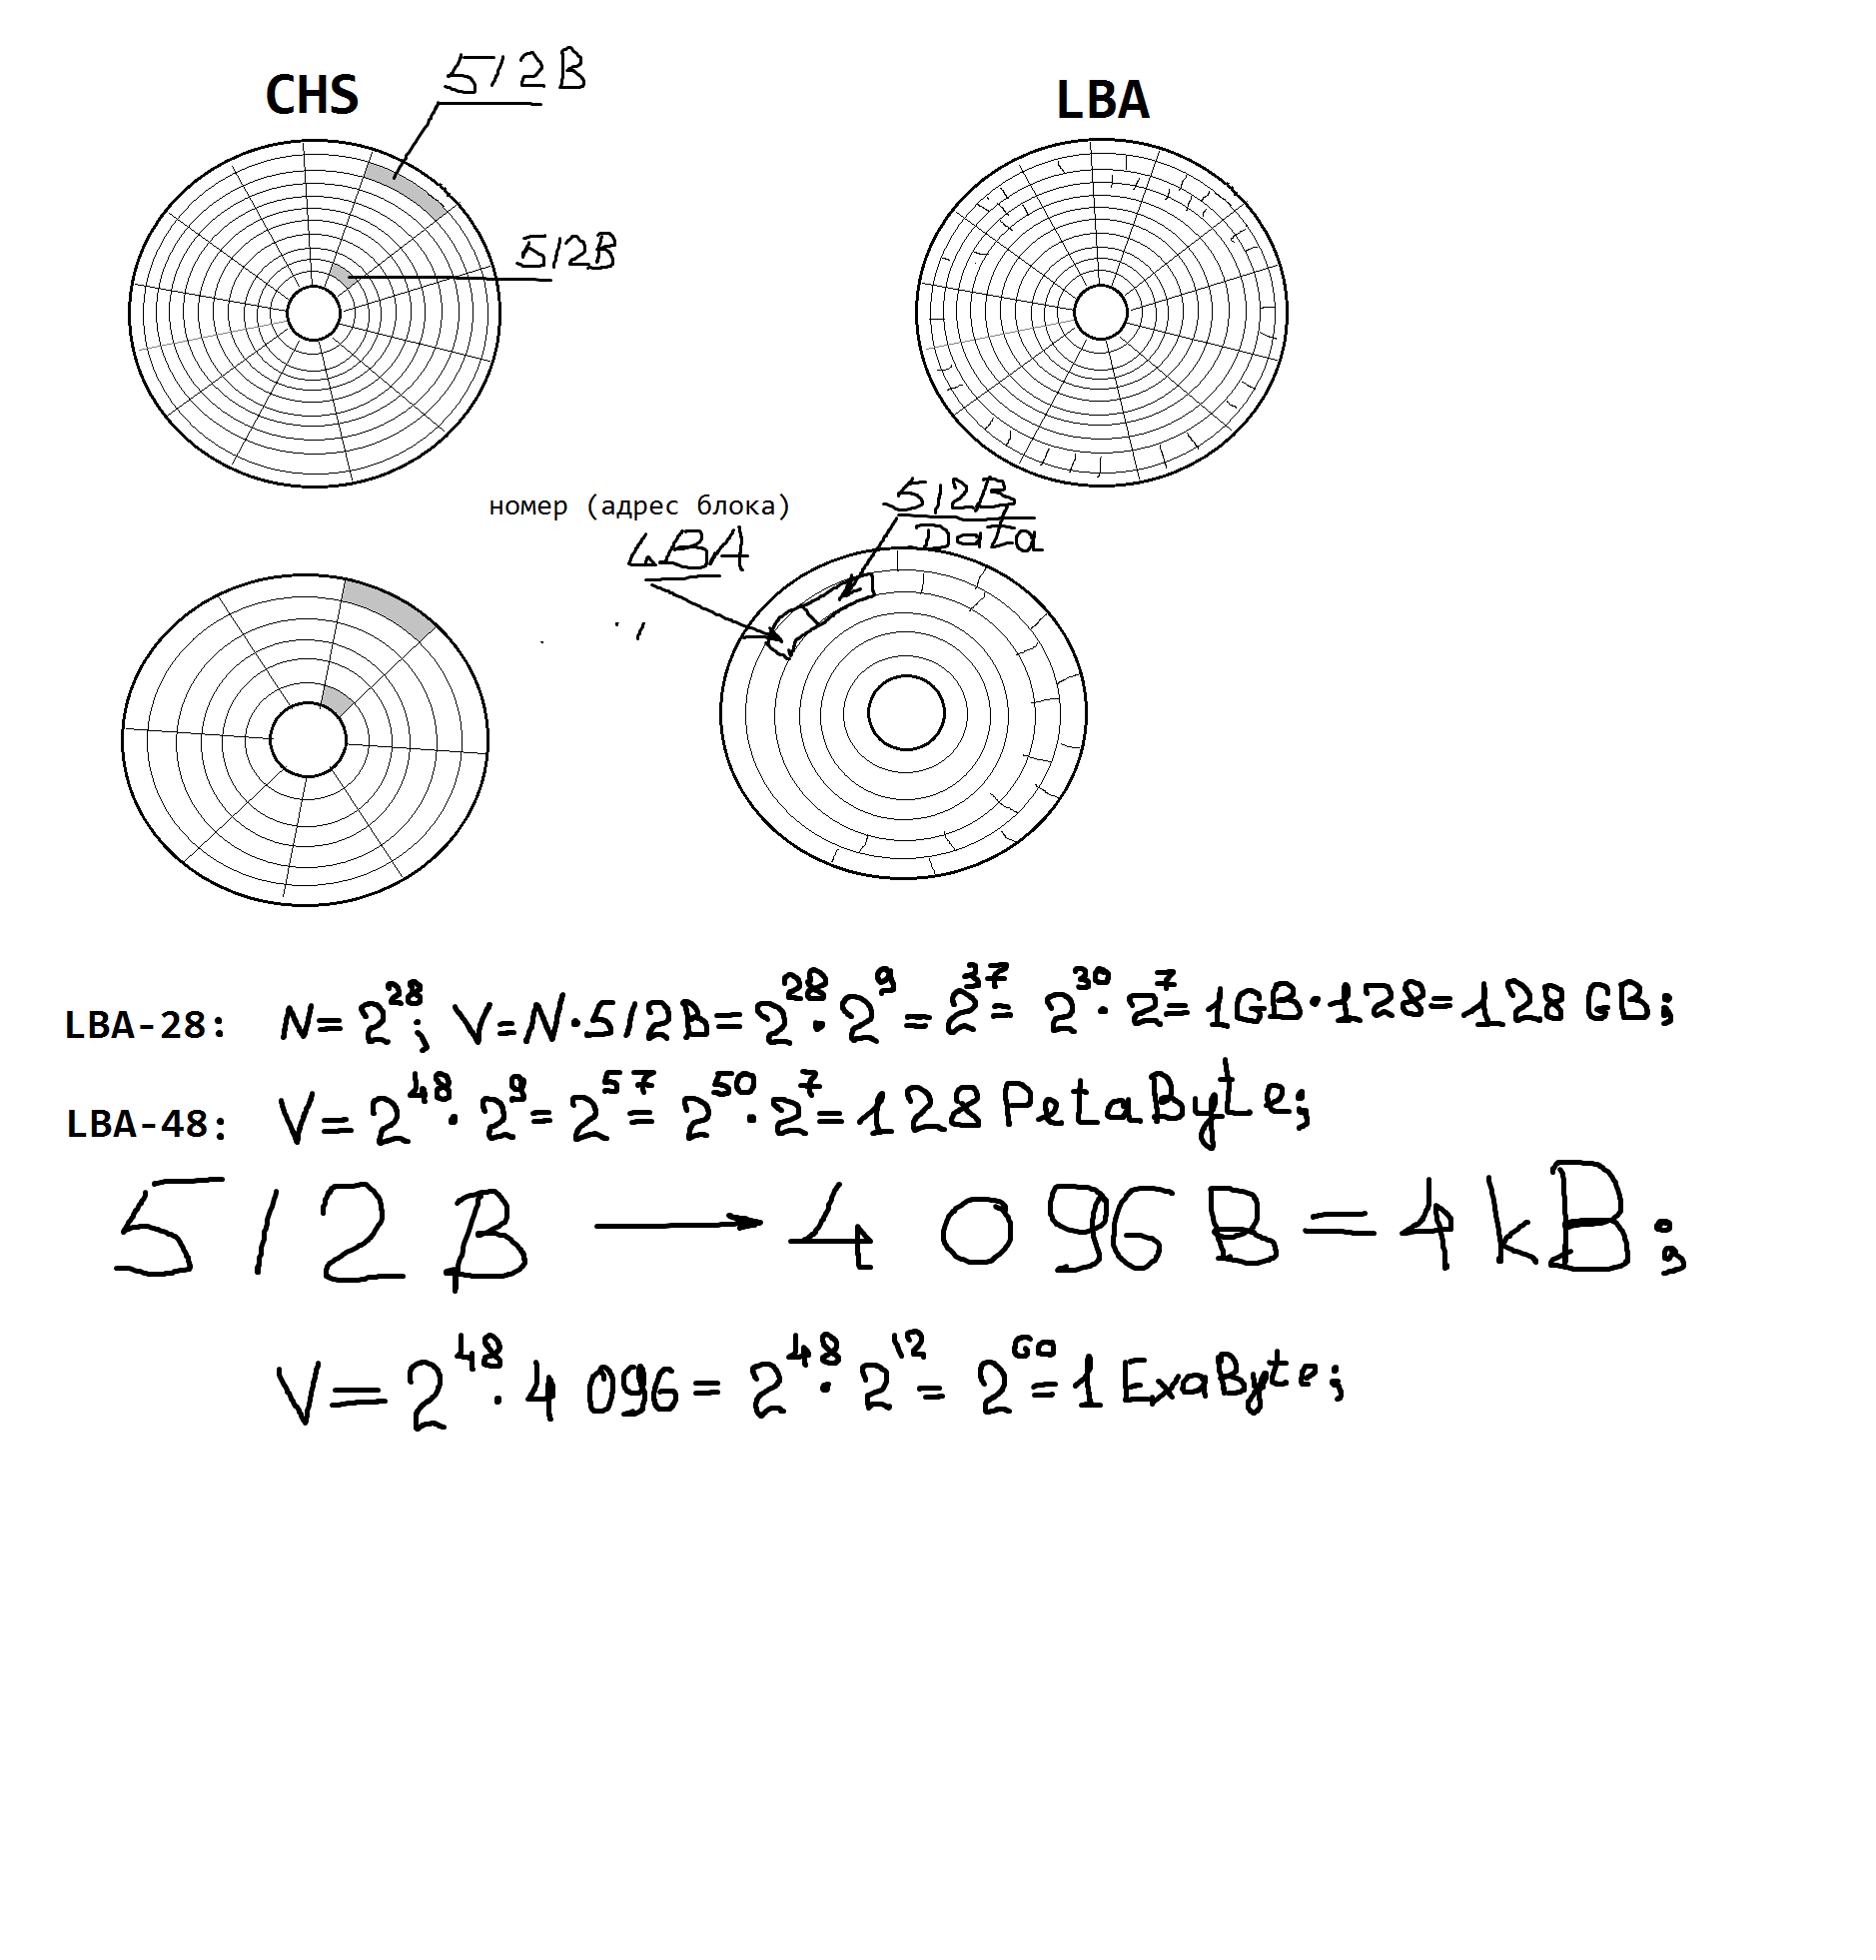 CHS
512B
LBA
512B
номер (адрес блока)
LBA
512B
Data
LBA-28: N=2²⁸; V=N·512B=2²⁸·2⁹=2³⁷=2³⁰·2⁷=1GB·128=128 GB;
LBA-48: V=2⁴⁸·2⁹=2⁵⁷=2⁵⁰·2⁷=128 PetaByte;
512B → 4 096B=4kB;
V=2⁴⁸·4 096=2⁴⁸·2¹²=2⁶⁰=1 ExaByte;